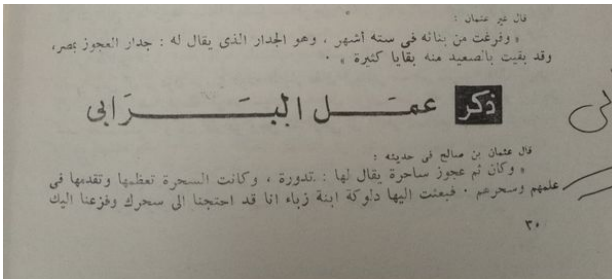 قال غير عثمان :
« وفرغت من بنائه فى ستة أشهر ، وهو الجدار الذى يقال له : جدار العجوز بمصر،
وقد بقيت بالصعيد منه بقايا كثيرة » .
ذكر عمل البرابى
قال عثمان بن صالح فى حديثه :
« وكان ثم عجوز ساحرة يقال لها : تدورة ، وكانت السحرة تعظمها وتقدمها فى
علمهم وسحرهم . فبعثت اليها دلوكة ابنة زباء انا قد احتجنا الى سحرك وفزعنا اليك
٣٠